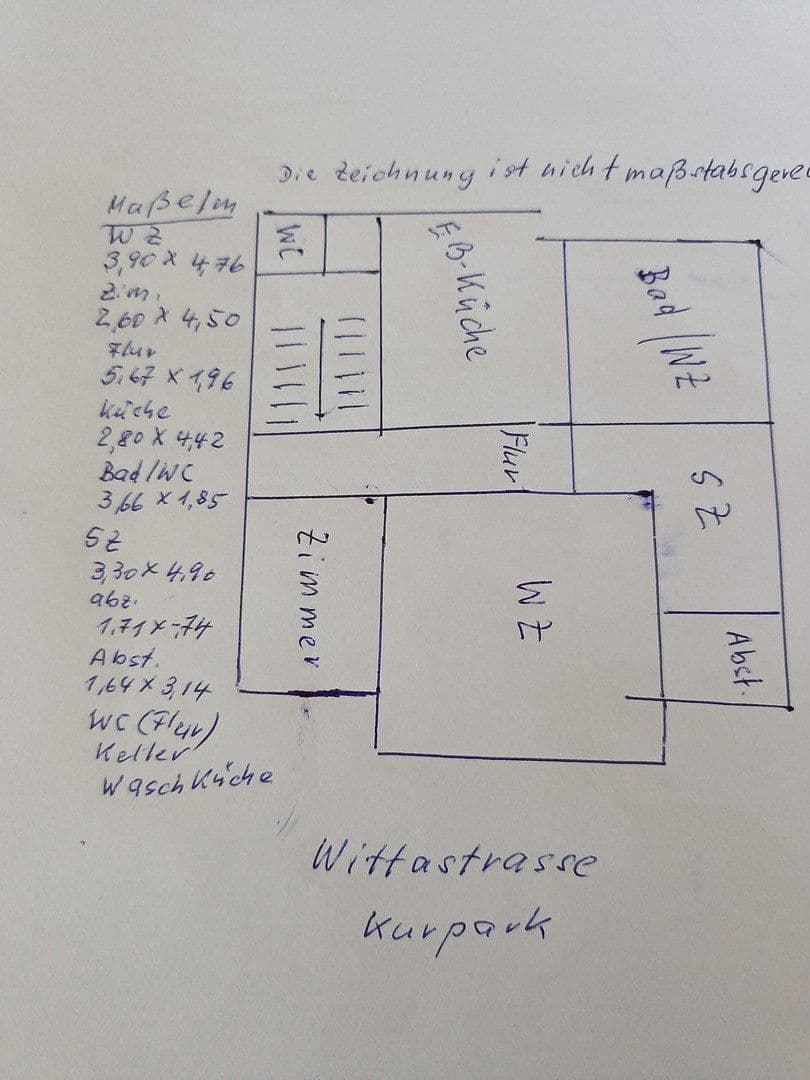 Die Zeichnung ist nicht maßstabsgere
Maße/m
WZ
3,90 x 4,76
Zim.
2,60 x 4,50
Flur
5,67 x 1,96
Küche
2,80 x 4,42
Bad/WC
3,66 x 1,85
SZ
3,30 x 4,90
abz.
1,71 x -,74
Abst.
1,64 x 3,14
WC (Flur)
Keller
Waschküche
WC
EB-Küche
Bad/WZ
Flur
SZ
Zimmer
WZ
Abst.
Wittastrasse
Kurpark